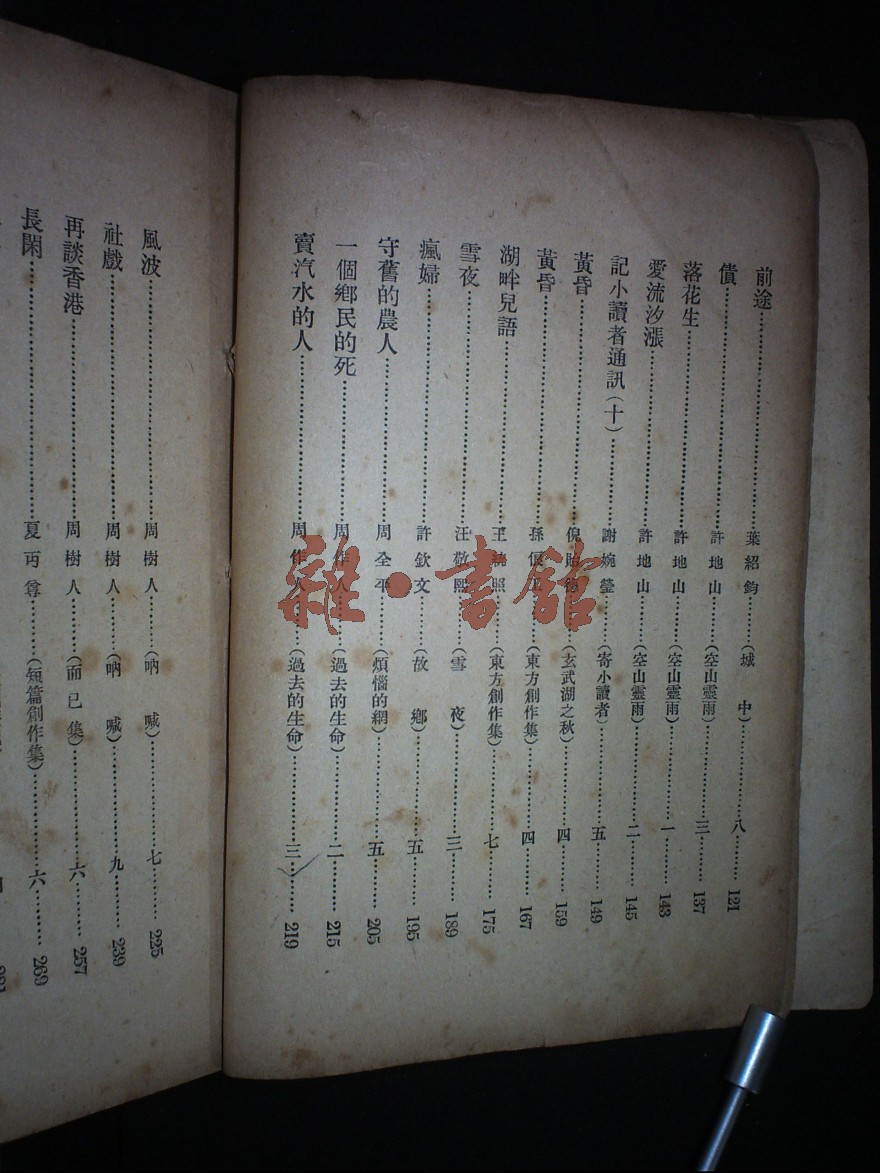 前途 葉紹鈞 (城 中) 八 121
債 許地山 (空山靈雨) 三 137
落花生 許地山 (空山靈雨) 一 143
愛流汐漲 許地山 (空山靈雨) 二 145
記小讀者通訊(十) 謝婉瑩 (寄小讀者) 五 149
黃昏 倪貽德 (玄武湖之秋) 四 159
黃昏 孫俍工 (東方創作集) 四 167
湖畔兒語 王統照 (東方創作集) 七 175
雪夜 汪敬熙 (雪 夜) 三 189
瘋婦 許欽文 (故 鄉) 五 195
守舊的農人 周全平 (煩惱的網) 五 205
一個鄉民的死 周作人 (過去的生命) 二 215
賣汽水的人 周作人 (過去的生命) 三 219
風波 周樹人 (吶 喊) 七 225
社戲 周樹人 (吶 喊) 九 239
再談香港 周樹人 (而已集) 六 257
長閑 夏丏尊 (短篇創作集) 六 269
雜·書館